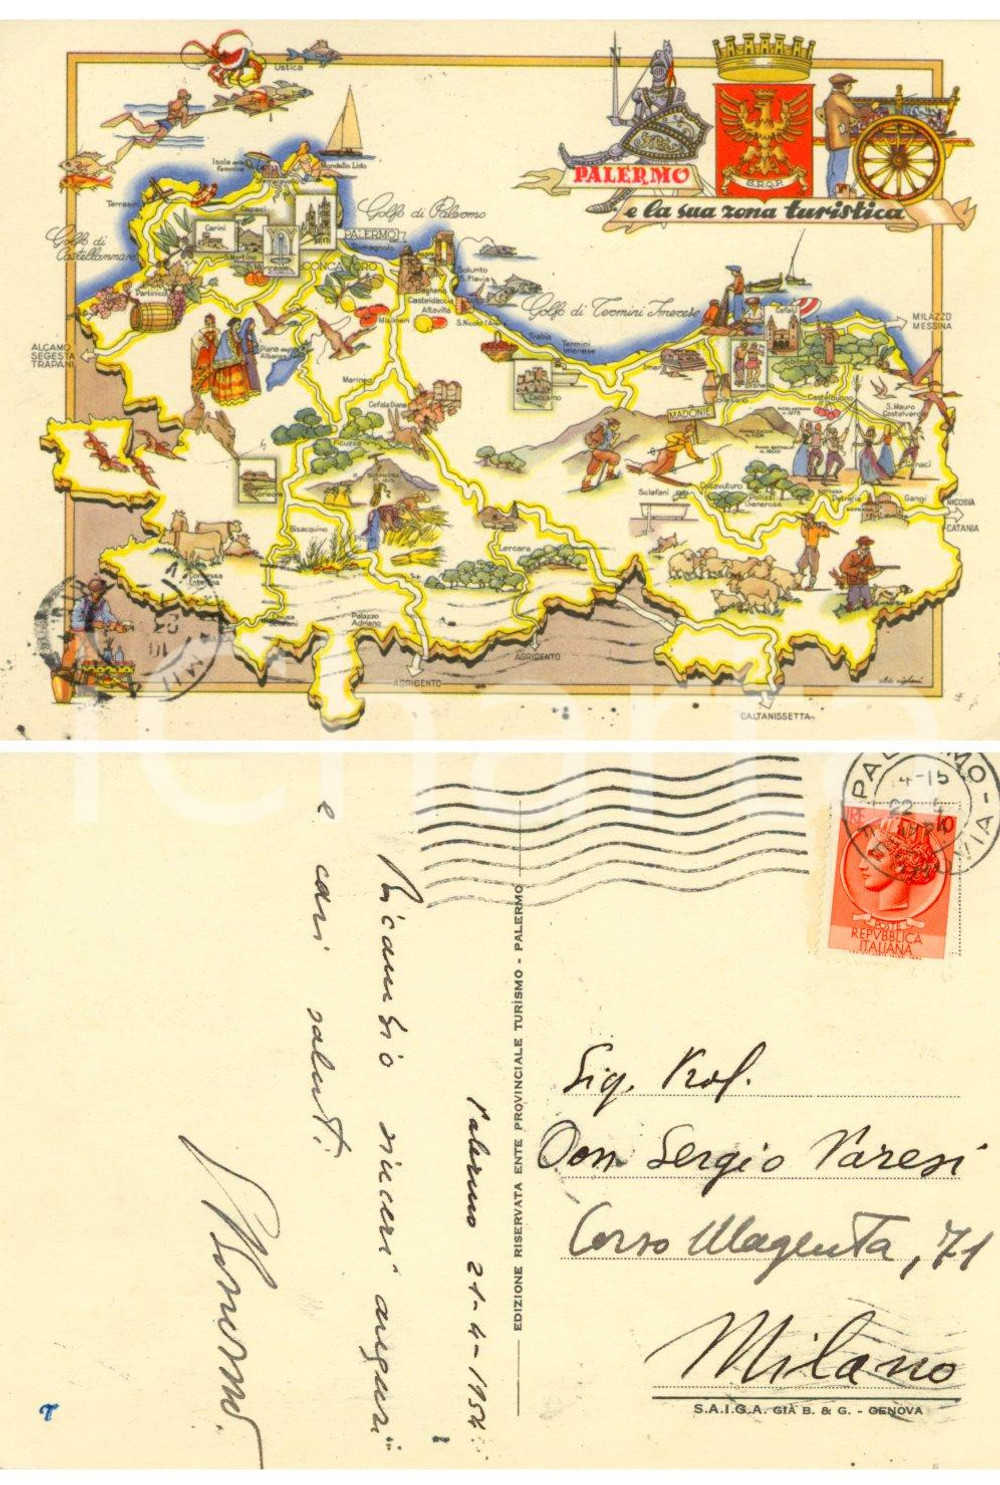 Ustica
Isola delle Femmine
Mondello Lido
Terrasini
Capaci
Carini
Golfo di Palermo
PALERMO
Golfo di Castellammare
CONCA D'ORO
Partinico
Bagheria
Solunto
S. Flavia
Casteldaccia
Altavilla
Misilmeri
S. Nicola l'Arena
Golfo di Termini Imerese
Trabia
Termini Imerese
PALERMO
S.P.Q.P.
e la sua zona turistica
N
Cefalù
MILAZZO
MESSINA
ALCAMO
SEGESTA
TRAPANI
Piana degli Albanesi
Marineo
Cefalà Diana
Caccamo
Imera
Collesano
MADONIE
Castelbuono
S. Mauro Castelverde
Ficuzza
Corleone
Sclafani
Caltavuturo
Polizzi Generosa
Petralia
Gangi
NICOSIA
CATANIA
Bisacquino
Prizzi
Lercara
Contessa Entellina
Chiusa
Palazzo Adriano
AGRIGENTO
AGRIGENTO
CALTANISSETTA
PALERMO
14-15
22 4
LIRE 10
POSTE
REPVBBLICA
ITALIANA
Palermo 21-4-1954
Ricambio sinceri auguri
e cari saluti
EDIZIONE RISERVATA ENTE PROVINCIALE TURISMO - PALERMO
Sig. Prof.
Don Sergio Varesi
Corso Magenta, 71
Milano
S.A.I.G.A. GIÀ B. & G. - GENOVA
iCharta